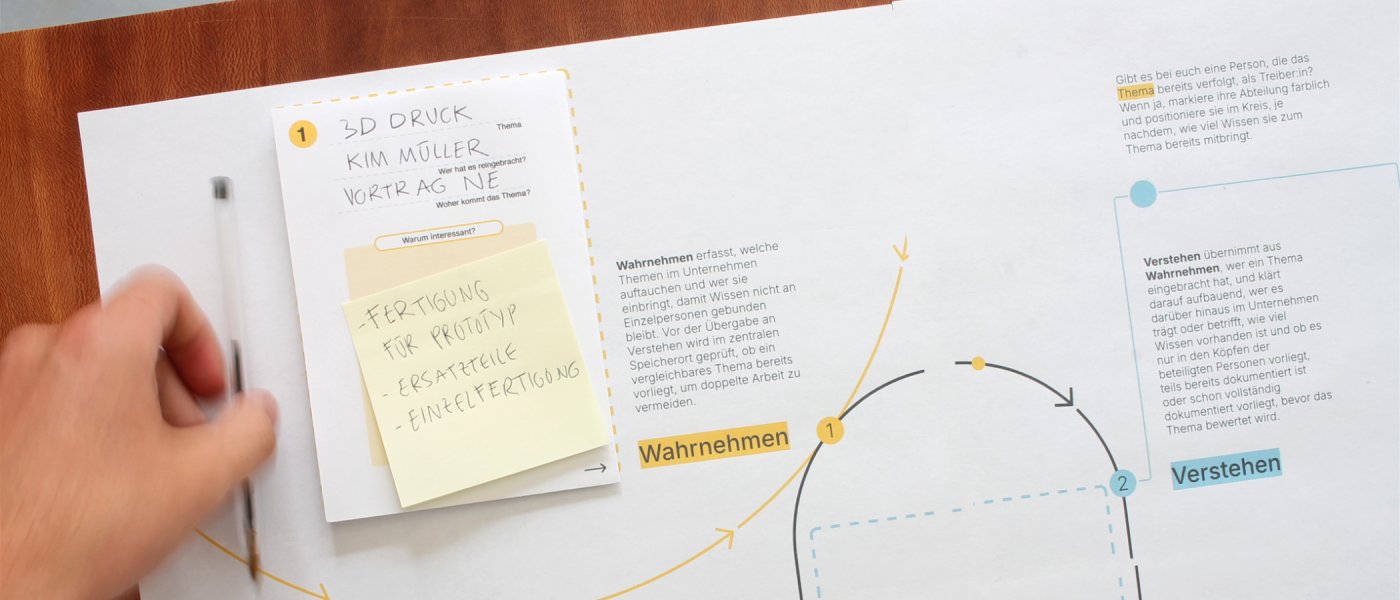 1
3D DRUCK
Thema
KIM MÜLLER
Wer hat es reingebracht?
VORTRAG NE
Woher kommt das Thema?
Warum interessant?
-FERTIGUNG
FÜR PROTOTYP
- ERSATZTEILE
- EINZELFERTIGUNG
Wahrnehmen erfasst, welche
Themen im Unternehmen
auftauchen und wer sie
einbringt, damit Wissen nicht an
Einzelpersonen gebunden
bleibt. Vor der Übergabe an
Verstehen wird im zentralen
Speicherort geprüft, ob ein
vergleichbares Thema bereits
vorliegt, um doppelte Arbeit zu
vermeiden.
Wahrnehmen
1
Gibt es bei euch eine Person, die das
Thema bereits verfolgt, als Treiber:in?
Wenn ja, markiere ihre Abteilung farblich
und positioniere sie im Kreis, je
nachdem, wie viel Wissen sie zum
Thema bereits mitbringt.
Verstehen übernimmt aus
Wahrnehmen, wer ein Thema
eingebracht hat, und klärt
darauf aufbauend, wer es
darüber hinaus im Unternehmen
trägt oder betrifft, wie viel
Wissen vorhanden ist und ob es
nur in den Köpfen der
beteiligten Personen vorliegt,
teils bereits dokumentiert ist
oder schon vollständig
dokumentiert vorliegt, bevor das
Thema bewertet wird.
2
Verstehen